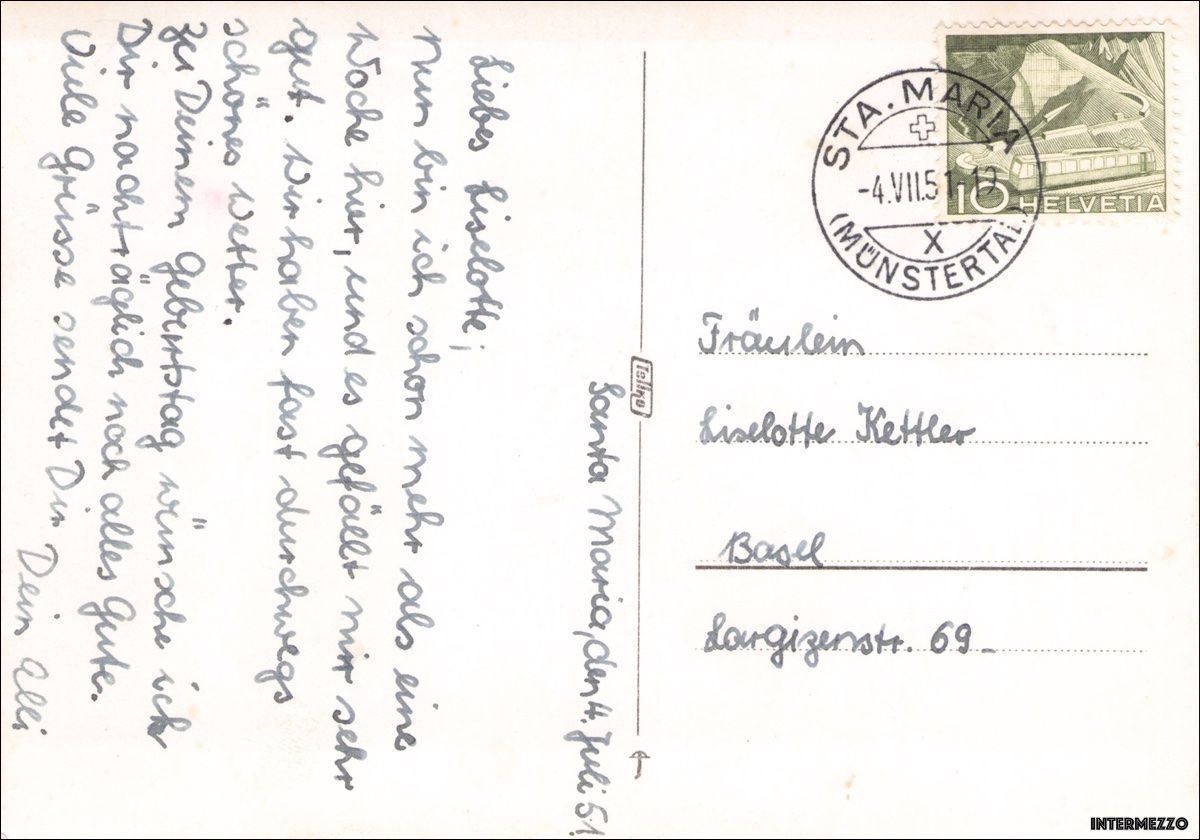 Santa Maria, den 4. Juli 51.
Liebes Liselotte;
Nun bin ich schon mehr als eine
Woche hier, und es gefällt mir sehr
gut. Wir haben fast durchwegs
schönes Wetter.
Zu Deinem Geburtstag wünsche ich
Dir nachträglich noch alles Gute.
Viele Grüsse sendet Dir Dein Alli
Telko
STA. MARIA
-4.VII.51.-12
X
(MÜNSTERTAL)
10 HELVETIA
Fräulein
Liselotte Kettler
Basel
Largizenstr. 69-
INTERMEZZO